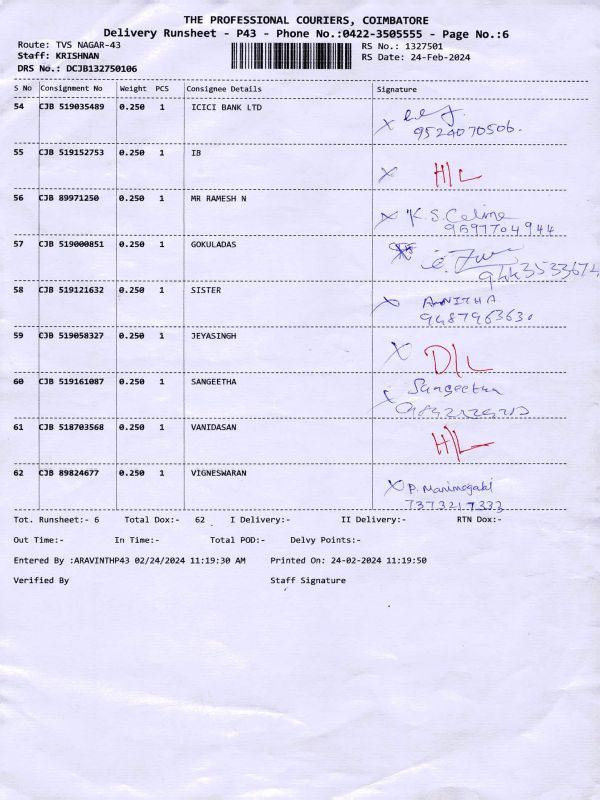 THE PROFESSIONAL COURIERS, COIMBATORE
Delivery Runsheet - P43 - Phone No.:0422-3505555 - Page No.:6
Route: TVS NAGAR-43
RS No.: 1327501
Staff: KRISHNAN
RS Date: 24-Feb-2024
DRS No.: DCJB132750106
S No Consignment No Weight PCS Consignee Details Signature
54 CJB 519035489 0.250 1 ICICI BANK LTD
9524070506.
55 CJB 519152753 0.250 1 IB H/L
56 CJB 89971250 0.250 1 MR RAMESH N K.S.Celine
9597704944
57 CJB 519000851 0.250 1 GOKULADAS
9443533674
58 CJB 519121632 0.250 1 SISTER ANITHA.
9487963630
59 CJB 519058327 0.250 1 JEYASINGH D/L
60 CJB 519161087 0.250 1 SANGEETHA Sangeetha
61 CJB 518703568 0.250 1 VANIDASAN H/L
62 CJB 89824677 0.250 1 VIGNESWARAN P. Manimegalai
7373217333
Tot. Runsheet:- 6 Total Dox:- 62 I Delivery:- II Delivery:- RTN Dox:-
Out Time:- In Time:- Total POD:- Delvy Points:-
Entered By :ARAVINTHP43 02/24/2024 11:19:30 AM Printed On: 24-02-2024 11:19:50
Verified By Staff Signature